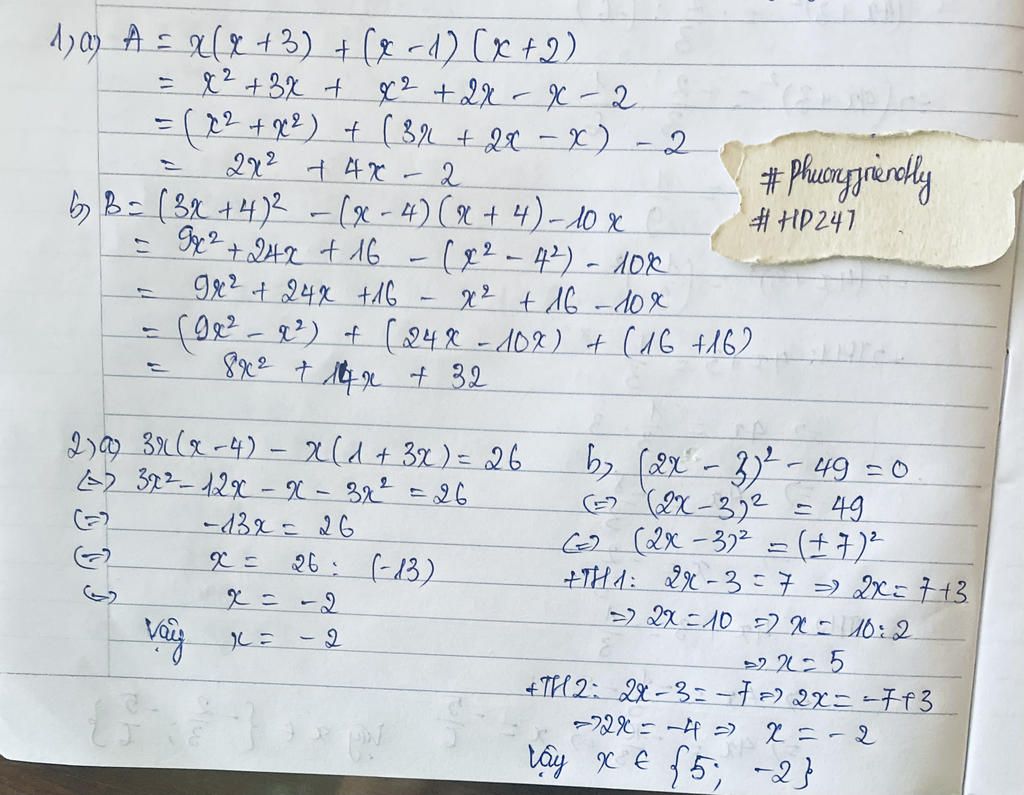 1, a) A = x(x + 3) + (x - 1) (x + 2)
= x² + 3x + x² + 2x - x - 2
= (x² + x²) + (3x + 2x - x) - 2
= 2x² + 4x - 2
b, B = (3x + 4)² - (x - 4) (x + 4) - 10x
= 9x² + 24x + 16 - (x² - 4²) - 10x
= 9x² + 24x + 16 - x² + 16 - 10x
= (9x² - x²) + (24x - 10x) + (16 + 16)
= 8x² + 14x + 32
# Phuongfriendly
# HD247
2, a) 3x(x - 4) - x(1 + 3x) = 26
(=) 3x² - 12x - x - 3x² = 26
(=) -13x = 26
(=) x = 26 : (-13)
(=) x = -2
Vậy x = -2
b, (2x - 3)² - 49 = 0
(=) (2x - 3)² = 49
(=) (2x - 3)² = (±7)²
+TH1: 2x - 3 = 7 => 2x = 7 + 3
=> 2x = 10 => x = 10 : 2
=> x = 5
+TH2: 2x - 3 = -7 => 2x = -7 + 3
=> 2x = -4 => x = -2
Vậy x ∈ {5; -2}